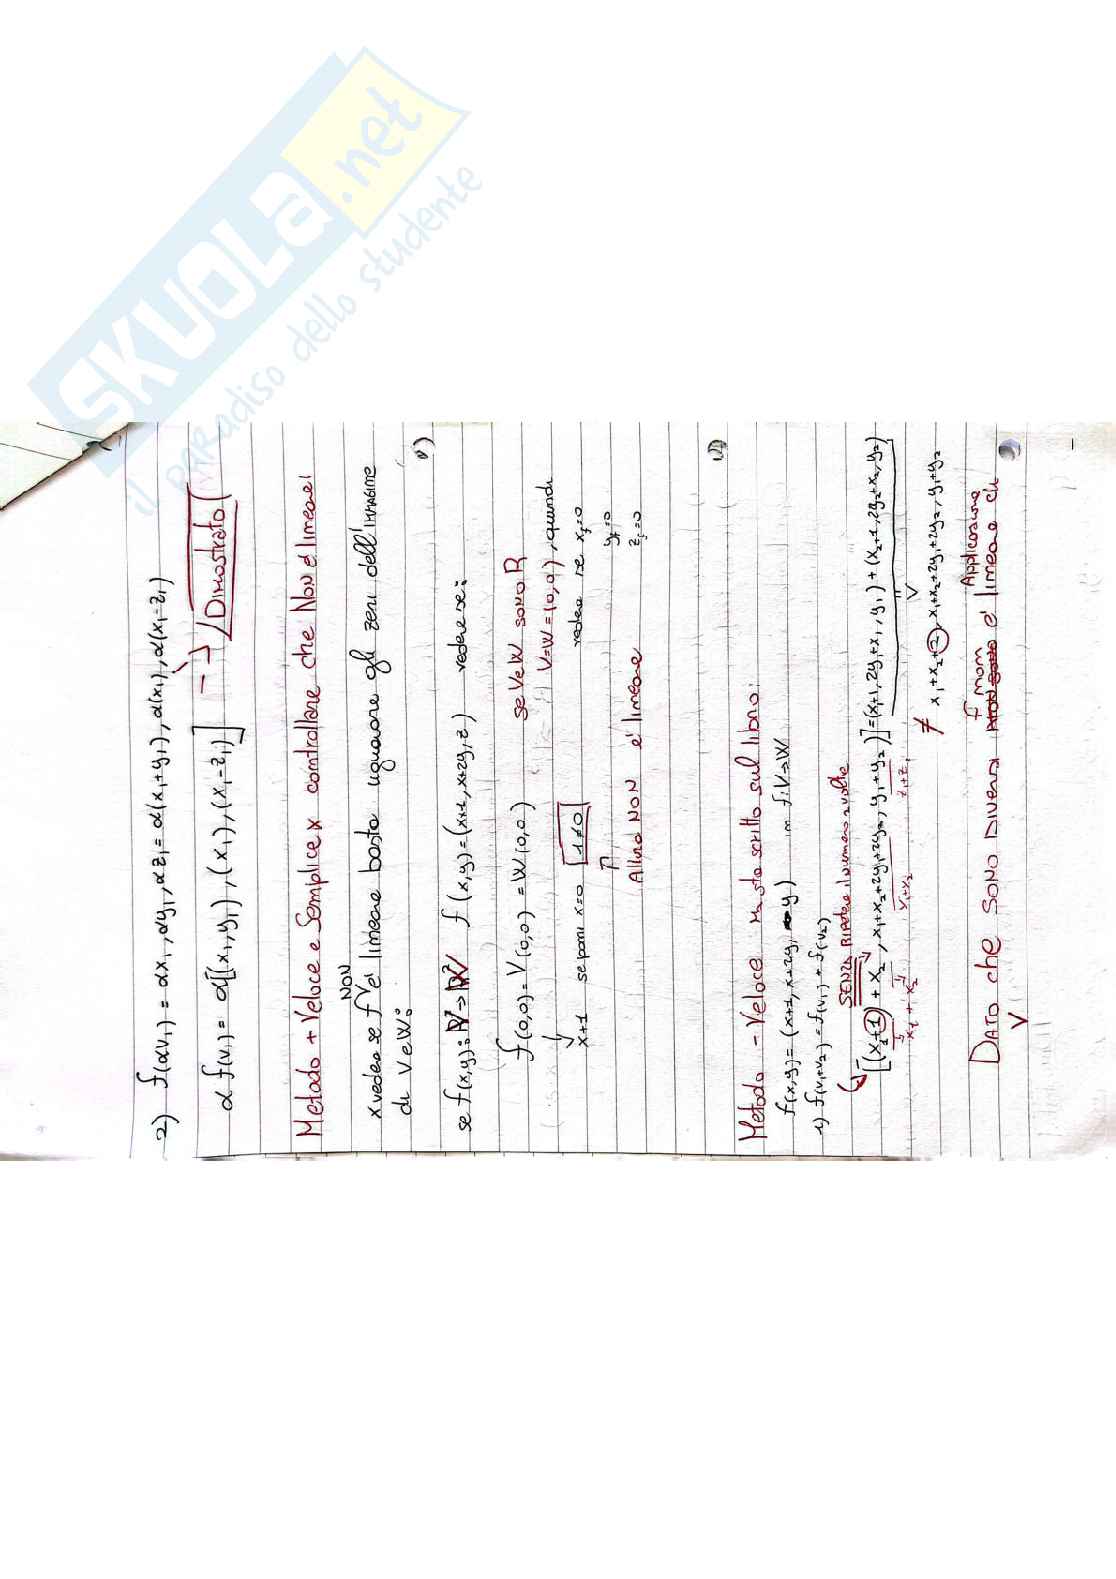 SKUOLA.net
il paradiso dello studente
2) f(αv₁) = αx₁, αy₁, αz₁ = α(x₁+y₁), α(x₁), α(x₁-z₁)
α f(v₁) = α[(x₁,y₁), (x₁), (x₁-z₁)] → Dimostrato
Metodo + Veloce e Semplice x controllare che Non è lineare!
x vedere se f NON è lineare basta uguagliare gli zeri dell'IMMAGINE
di V e W:
se f(x,y): R²→ f(x,y) = (x+1, x+2y, z) vedere se:
f(0,0) = V(0,0) = W(0,0) se V e W sono R
V=W=(0,0), quindi
x+1 se poni x=0 1≠0 vedere se x₁=0
y=0
z=0
Allora NON è lineare
Metodo - Veloce ma sta scritto sul libro:
f(x,y) = (x+1, x+2y, y) in f:V→W
1) f(v₁+v₂) = f(v₁) + f(v₂)
SENZA Ripetere il numero 2 volte
[(x₁+1) + x₂, x₁+x₂+2y₁+2y₂, y₁+y₂)] = (x₁+1, 2y₁+x₁, y₁) + (x₂+1, 2y₂+x₂, y₂)
x₁ + x₂ v₁+v₂ z₁+z₂
≠ x₁+x₂+2, x₁+x₂+2y₁+2y₂, y₁+y₂
DATO che SONO DIVERSI f non è Applicazione lineare